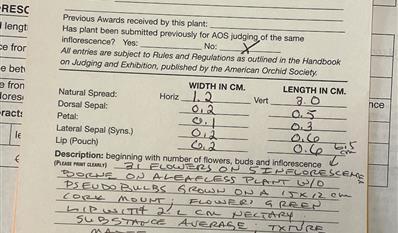 RESC
Previous Awards received by this plant:
Has plant been submitted previously for AOS judging of the same
inflorescence? Yes: No: X
All entries are subject to Rules and Regulations as outlined in the Handbook
on Judging and Exhibition, published by the American Orchid Society.
WIDTH IN CM. LENGTH IN CM.
Natural Spread: Horiz 1.2 Vert 3.0
Dorsal Sepal: 0.2 0.5
Petal: 0.1 0.3
Lateral Sepal (Syns.) 0.2 0.6
Lip (Pouch) 0.2 0.6 6.5 cm
Description: beginning with number of flowers, buds and inflorescence
(PLEASE PRINT CLEARLY) 31 FLOWERS ON 5 INFLORESCENCE
BORNE ON A LEAFLESS PLANT W/O
PSEUDOBULBS GROWN ON A 15 X 12 CM
CORK MOUNT, FLOWERS GREEN
LIP WITH 2.2 CM NECTARY.
SUBSTANCE AVERAGE, TXTURE